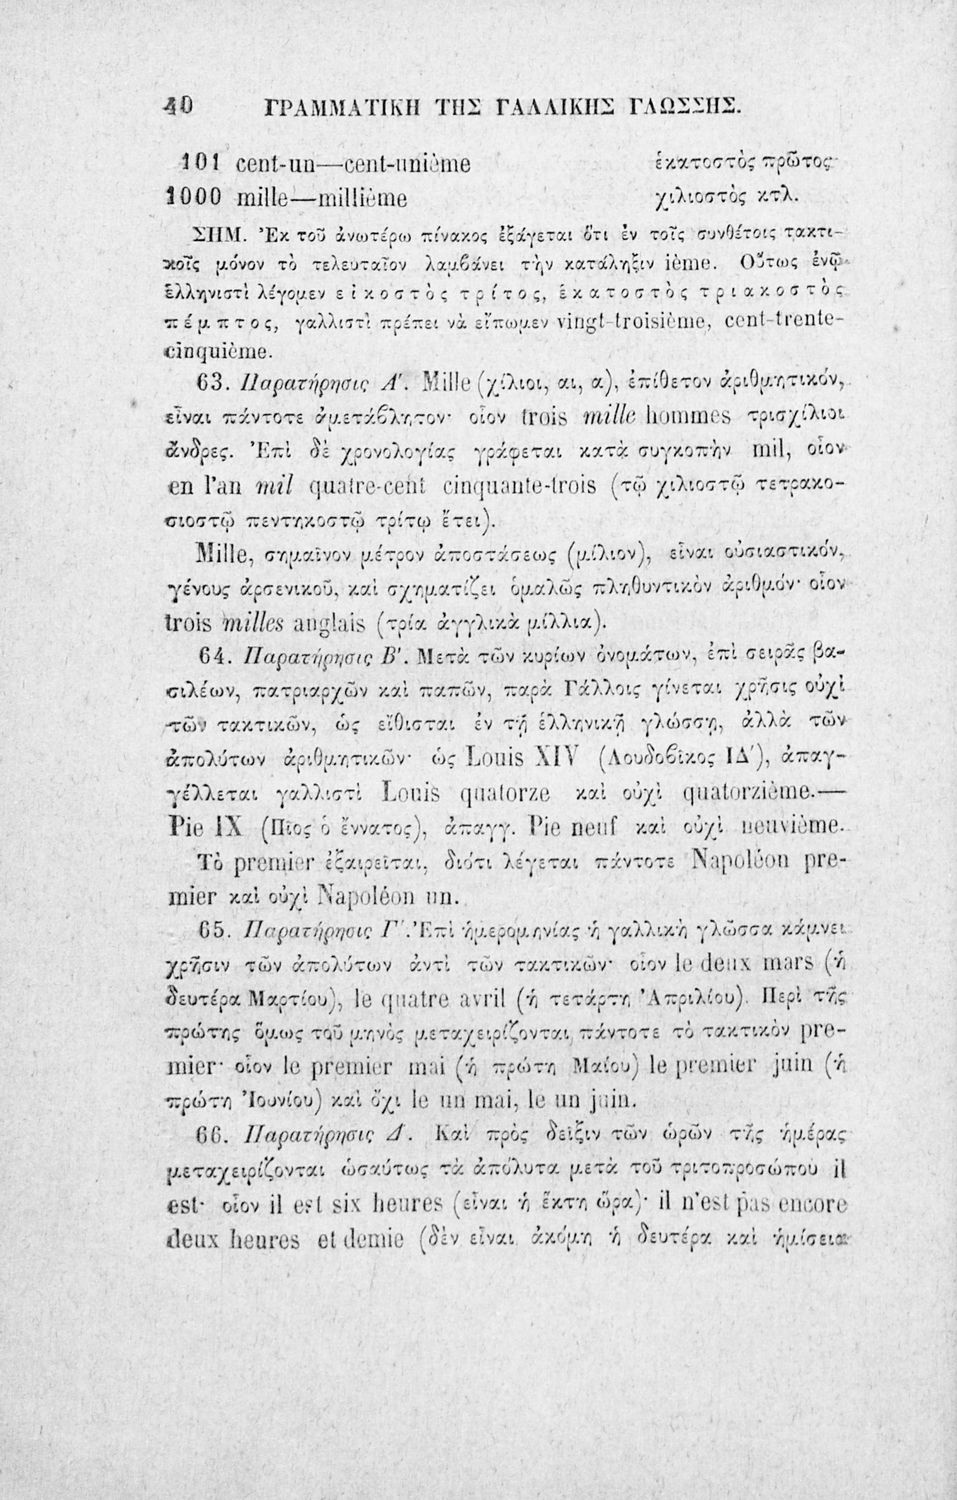 40 ΓΡΑΜΜΑΤΙΚΗ ΤΗΣ ΓΑΛΛΙΚΗΣ ΓΛΩΣΣΗΣ.
101 cent-un—cent-unième ἑκατοστὸς πρῶτος
1000 mille—millième χιλιοστὸς κτλ.
ΣΗΜ. Ἐκ τοῦ ἀνωτέρω πίνακος ἐξάγεται ὅτι ἐν τοῖς συνθέτοις τακτι-
κοῖς μόνον τὸ τελευταῖον λαμβάνει τὴν κατάληξιν ième. Οὕτως ἐνῷ
ἑλληνιστὶ λέγομεν εἰκοστὸς τρίτος, ἑκατοστὸς τριακοστὸς
πέμπτος, γαλλιστὶ πρέπει νὰ εἴπωμεν vingt-troisième, cent-trente-
cinquième.
63. Παρατήρησις Α'. Mille (χίλιοι, αι, α), ἐπίθετον ἀριθμητικόν,
εἶναι πάντοτε ἀμετάβλητον· οἷον trois mille hommes τρισχίλιοι
ἄνδρες. Ἐπὶ δὲ χρονολογίας γράφεται κατὰ συγκοπὴν mil, οἷον
en l'an mil quatre-cent cinquante-trois (τῷ χιλιοστῷ τετρακο-
σιοστῷ πεντηκοστῷ τρίτῳ ἔτει).
Mille, σημαῖνον μέτρον ἀποστάσεως (μίλιον), εἶναι οὐσιαστικόν,
γένους ἀρσενικοῦ, καὶ σχηματίζει ὁμαλῶς πληθυντικὸν ἀριθμόν· οἷον
trois milles anglais (τρία ἀγγλικὰ μίλλια).
64. Παρατήρησις Β'. Μετὰ τῶν κυρίων ὀνομάτων, ἐπὶ σειρᾶς βα-
σιλέων, πατριαρχῶν καὶ παπῶν, παρὰ Γάλλοις γίνεται χρῆσις οὐχὶ
τῶν τακτικῶν, ὡς εἴθισται ἐν τῇ ἑλληνικῇ γλώσσῃ, ἀλλὰ τῶν
ἀπολύτων ἀριθμητικῶν· ὡς Louis XIV (Λουδοβῖκος ΙΔ'), ἀπαγ-
γέλλεται γαλλιστὶ Louis quatorze καὶ οὐχὶ quatorzième.—
Pie IX (Πῖος ὁ ἔννατος), ἀπαγγ. Pie neuf καὶ οὐχὶ neuvième.
Τὸ premier ἐξαιρεῖται, διότι λέγεται πάντοτε Napoléon pre-
mier καὶ οὐχὶ Napoléon un.
65. Παρατήρησις Γ'. Ἐπὶ ἡμερομηνίας ἡ γαλλικὴ γλῶσσα κάμνει
χρῆσιν τῶν ἀπολύτων ἀντὶ τῶν τακτικῶν· οἷον le deux mars (ἡ
δευτέρα Μαρτίου), le quatre avril (ἡ τετάρτη Ἀπριλίου). Περὶ τῆς
πρώτης ὅμως τοῦ μηνὸς μεταχειρίζονται πάντοτε τὸ τακτικὸν pre-
mier· οἷον le premier mai (ἡ πρώτη Μαΐου) le premier juin (ἡ
πρώτη Ἰουνίου) καὶ ὄχι le un mai, le un juin.
66. Παρατήρησις Δ'. Καὶ πρὸς δεῖξιν τῶν ὡρῶν τῆς ἡμέρας
μεταχειρίζονται ὡσαύτως τὰ ἀπόλυτα μετὰ τοῦ τριτοπροσώπου il
est· οἷον il est six heures (εἶναι ἡ ἕκτη ὥρα)· il n'est pas encore
deux heures et demie (δὲν εἶναι ἀκόμη ἡ δευτέρα καὶ ἡμίσεια